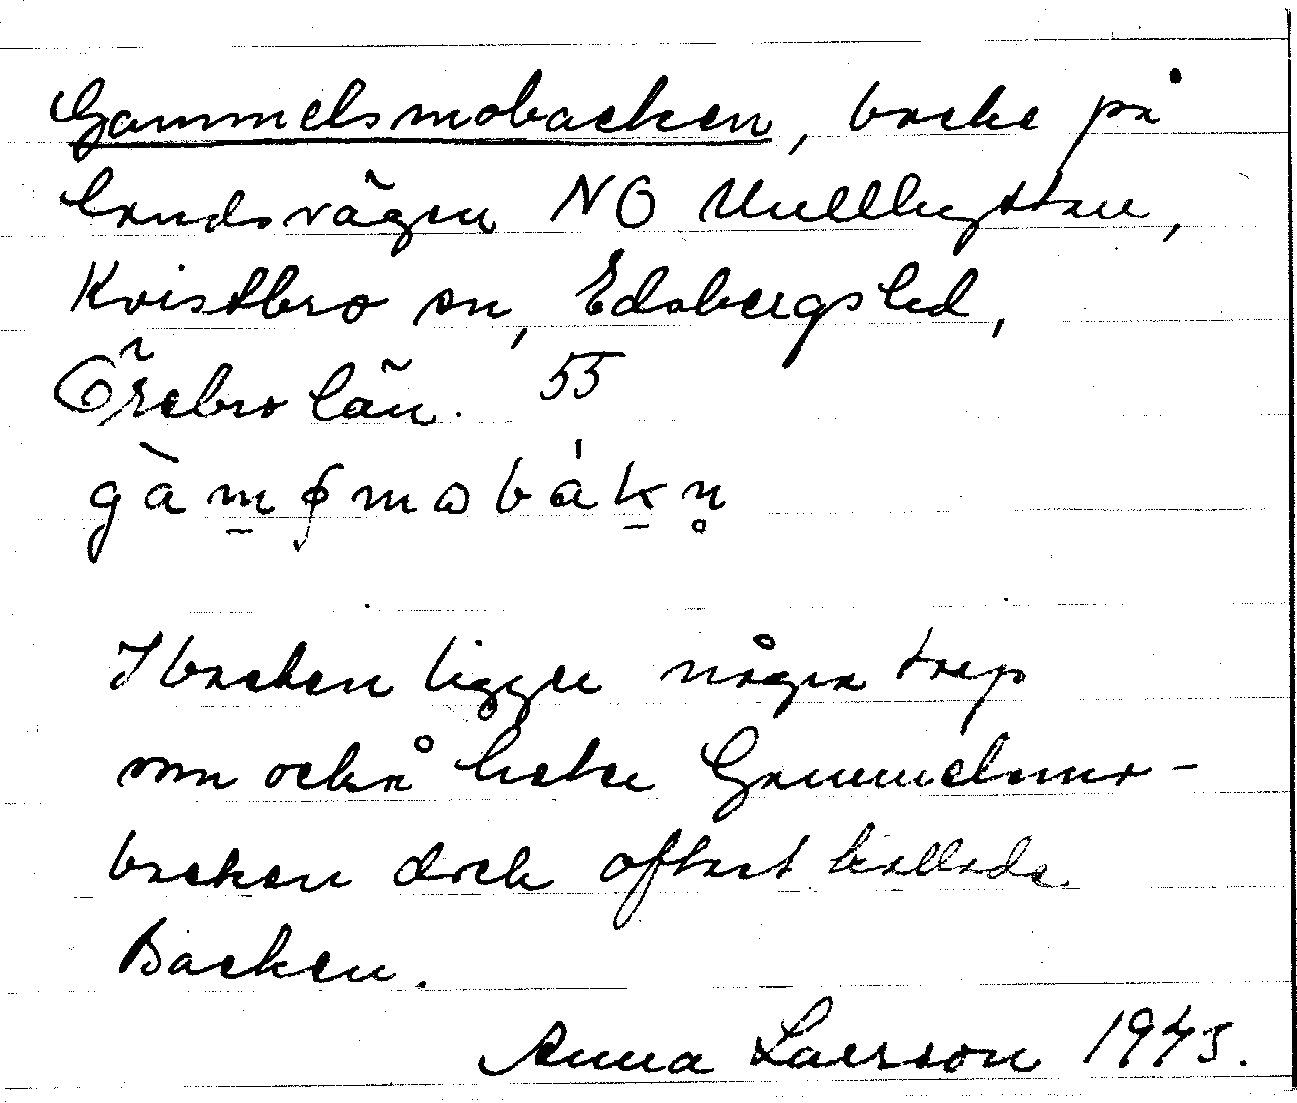 Gammelsmobacken, backe på
landsvägen NO Mullhyttan,
Kvistbro sn, Edsbergs hd,
Örebro län. 55
I backen ligger några torp
som också heter Gammelsmo-
backen dock oftast kallade
Backen.
Anna Larsson 1943.